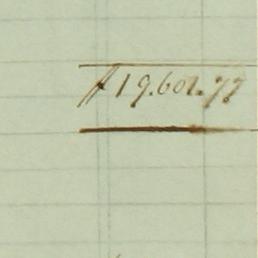 ƒ 19.601.77